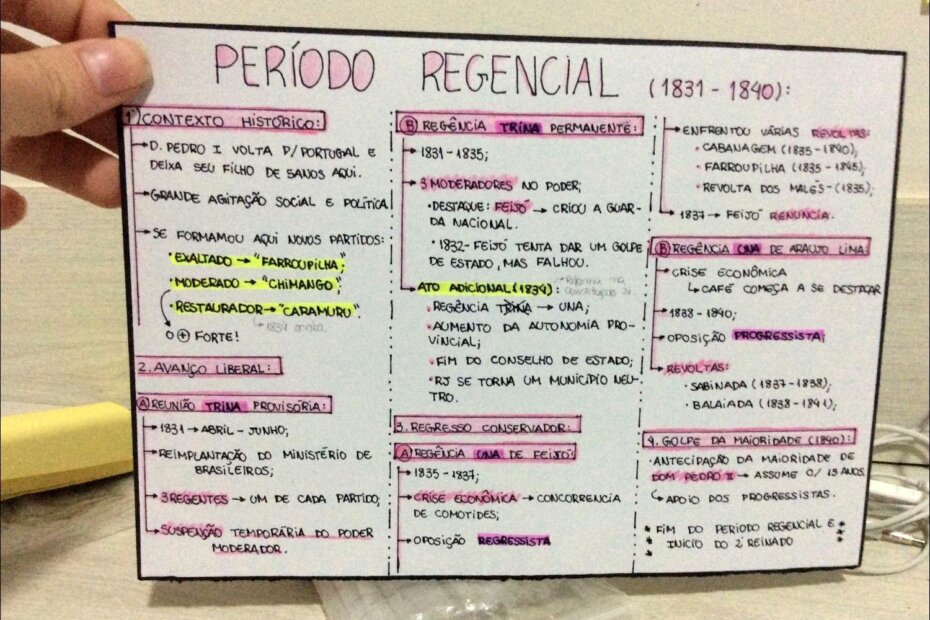 PERÍODO REGENCIAL (1831 - 1840):
1) CONTEXTO HISTÓRICO:
→ D. PEDRO I VOLTA P/ PORTUGAL E
DEIXA SEU FILHO DE 5ANOS AQUI.
→ GRANDE AGITAÇÃO SOCIAL E POLÍTICA
→ SE FORMAMOU AQUI NOVOS PARTIDOS:
• EXALTADO → "FARROUPILHA";
• MODERADO → "CHIMANGO";
• RESTAURADOR → "CARAMURU".
→ 1834 acaba
O ⊕ FORTE!
2. AVANÇO LIBERAL:
A) REUNIÃO TRINA PROVISÓRIA:
→ 1831 → ABRIL - JUNHO;
→ REIMPLANTAÇÃO DO MINISTÉRIO DE
BRASILEIROS;
→ 3 REGENTES → UM DE CADA PARTIDO;
→ SUSPENÇÃO TEMPORÁRIA DO PODER
MODERADOR.
B) REGÊNCIA TRINA PERMANENTE:
→ 1831 - 1835;
→ 3 MODERADORES NO PODER;
• DESTAQUE: FEIJÓ → CRIOU A GUAR-
DA NACIONAL.
• 1832 - FEIJÓ TENTA DAR UM GOLPE
DE ESTADO, MAS FALHOU.
→ ATO ADICIONAL (1834): → Reforma na
constituição
• REGÊNCIA TRINA → UNA;
• AUMENTO DA AUTONOMIA PRO-
VINCIAL;
• FIM DO CONSELHO DE ESTADO;
• RJ SE TORNA UM MUNICÍPIO NEU-
TRO.
3. REGRESSO CONSERVADOR:
A) REGÊNCIA UNA DE FEIJÓ:
→ 1835 - 1837;
→ CRISE ECONÔMICA → CONCORRENCIA
DE COMOTIDES;
→ OPOSIÇÃO REGRESSISTA
→ ENFRENTOU VÁRIAS REVOLTAS:
• CABANAGEM (1835 - 1840);
• FARROUPILHA (1835 - 1845);
• REVOLTA DOS MALÊS - (1835);
→ 1837 → FEIJÓ RENUNCIA.
B) REGÊNCIA UNA DE ARAUJO LIMA:
→ CRISE ECONÔMICA
↳ CAFÉ COMEÇA A SE DESTACAR
→ 1838 - 1840;
→ OPOSIÇÃO PROGRESSISTA;
→ REVOLTAS:
• SABINADA (1837 - 1838);
• BALAIADA (1838 - 1841);
4. GOLPE DA MAIORIDADE (1840):
• ANTECIPAÇÃO DA MAIORIDADE DE
DOM PEDRO II → ASSUME C/ 15 ANOS.
↳ APOIO DOS PROGRESSISTAS.
* FIM DO PERIODO REGENCIAL E *
* INÍCIO DO 2º REINADO *